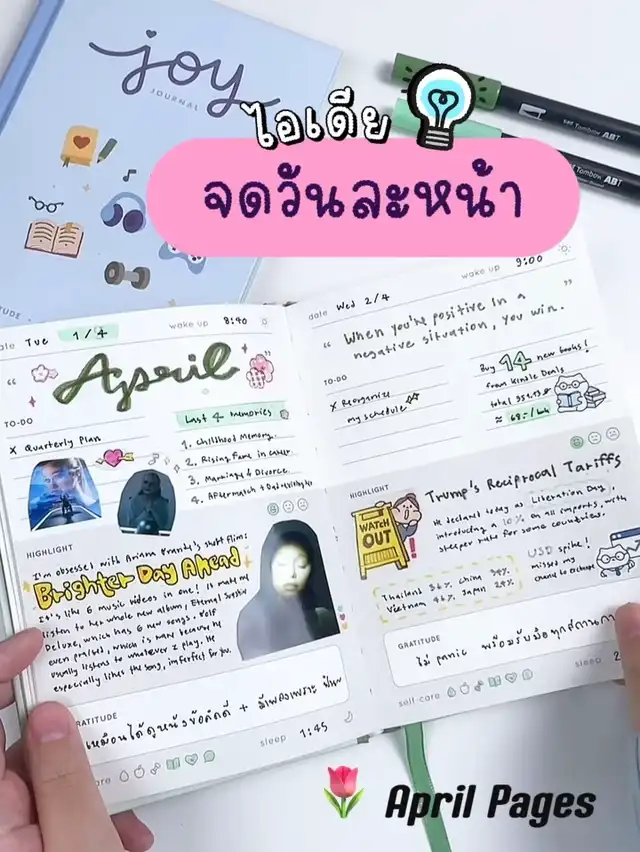 joy
JOURNAL
ไอเดีย
จดวันละหน้า
sei Tombow ABT
Tombow ABT
date Tue 1/4 wake up 8:40
April
TO-DO
x Quarterly Plan
Last 4 memories
1. Childhood Memory
2. Rising Fame in career
3. Marriage & Divorce
4. Aftermath +
HIGHLIGHT
I'm obsessed with Ariana Grande's short film:
Brighter Day Ahead
It's like 6 music videos in one! It made me
listen to her whole new album, Eternal Sunshine
Deluxe, which has 6 new songs. Wolf
even praised, which is rare because he
usually listens to whatever I play. He
especially likes the song, imperfect for you.
GRATITUDE
เหมือนได้ดูหนังข้อคิดดี + มีเพลงเพราะ
care sleep 1:45
date Wed 2/4 wake up 9:00
" When you're positive in a
negative situation, you win. "
TO-DO
x Reorganize
my schedule
Buy 14 new books!
from Kindle Deals
total
HIGHLIGHT
Trump's Reciprocal Tariffs
WATCH
OUT
He declared today as Liberation Day,
introducing a 10% on all imports, with
steeper rate for some countries.
Thailand 36% China 34%
Vietnam 46% Japan 24%
USD spike!
missed my
chance to
GRATITUDE
ไม่ panic พร้อมรับมือทุกสถานการ
self-care sleep
April Pages